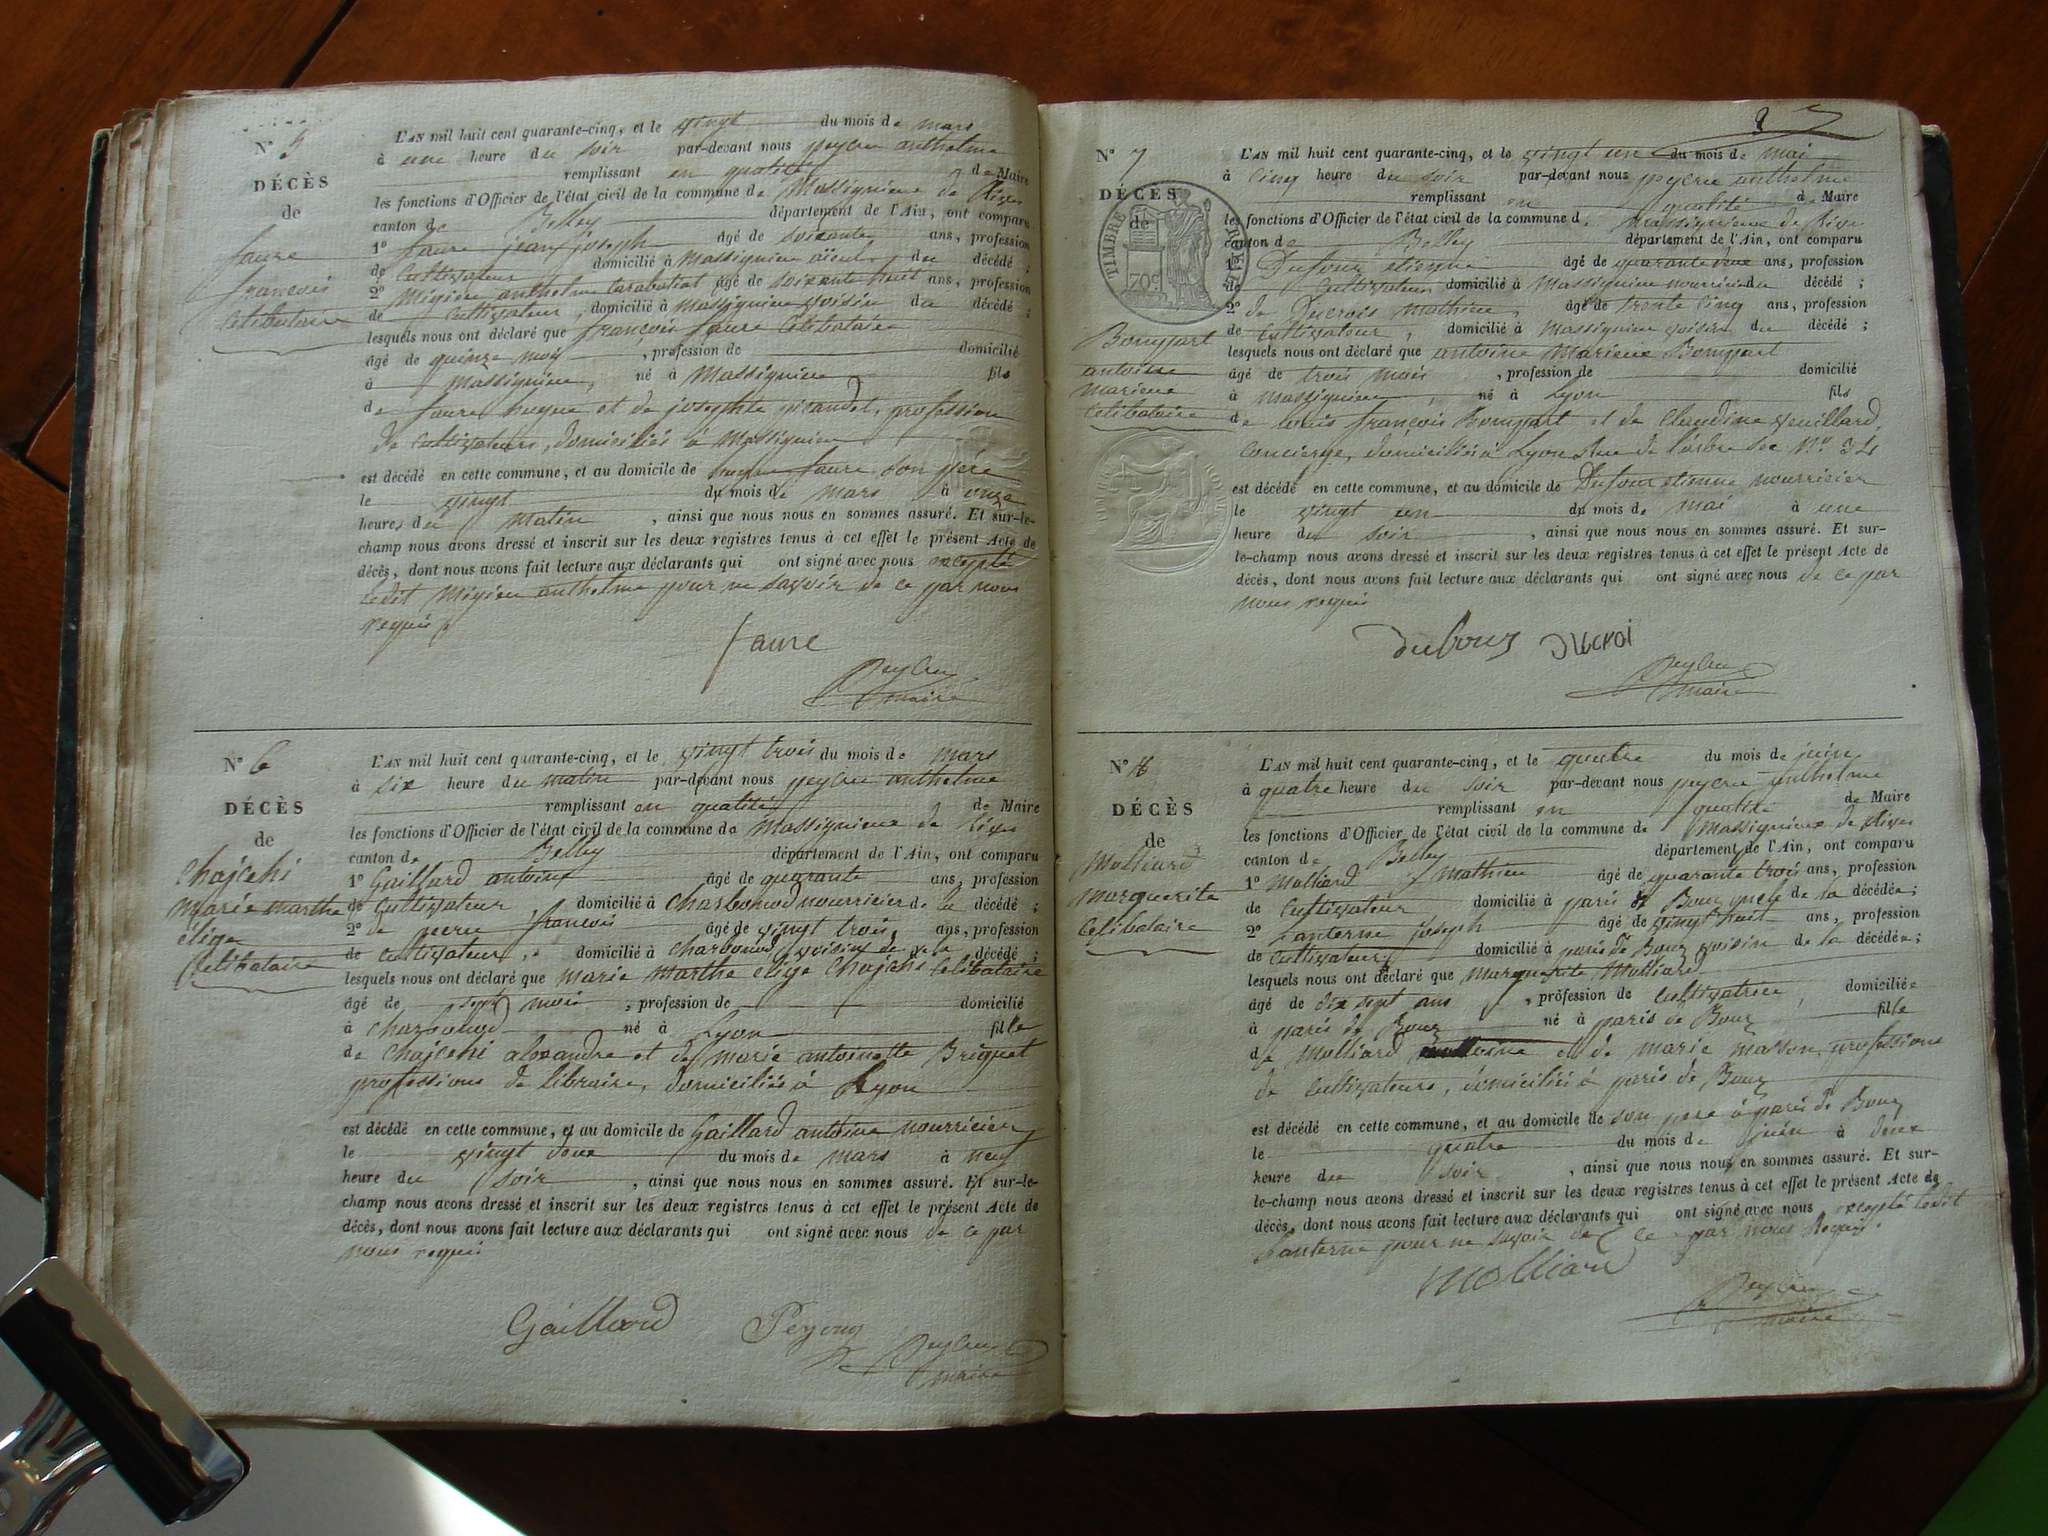 N° 5
DÉCÈS
de
faure
françois
Celibataire
L'AN mil huit cent quarante-cinq, et le vingt du mois de mars
à une heure du soir par-devant nous peycru anthelme
remplissant en qualité de Maire
les fonctions d'Officier de l'état civil de la commune de Massignieu de Rives
canton de Belley département de l'Ain, ont comparu
1° faure jean joseph âgé de soixante ans, profession
de Cultivateur domicilié à Massignieu aïeul du décédé ;
2° Migieu anthelme âgé de soixante huit ans, profession
de Cultivateur, domicilié à Massignieu voisin du décédé ;
lesquels nous ont déclaré que françois faure Celibataire
âgé de quinze mois, profession de domicilié
à Massignieu, né à Massignieu fils
de faure hugue et de josephte picandet, profession
de Cultivateurs, domiciliés à Massignieu
est décédé en cette commune, et au domicile de hugue faure son père
le vingt du mois de mars à onze
heures du Matin, ainsi que nous nous en sommes assuré. Et sur-le-
champ nous avons dressé et inscrit sur les deux registres tenus à cet effet le présent Acte de
décès, dont nous avons fait lecture aux déclarants qui ont signé avec nous excepté
ledit Migieu anthelme pour ne savoir de ce par nous
requis
faure
Peycru
maire
N° 6
DÉCÈS
de
Chajchi
marie marthe
élize
Celibataire
L'AN mil huit cent quarante-cinq, et le vingt trois du mois de mars
à six heure du matin par-devant nous peycru anthelme
remplissant en qualité de Maire
les fonctions d'Officier de l'état civil de la commune de Massignieu de Rives
canton de Belley département de l'Ain, ont comparu
1° Gaillard antoine âgé de quarante ans, profession
de Cultivateur, domicilié à Charbonod nourricier de la décédé ;
2° de françois âgé de vingt trois ans, profession
de Cultivateur, domicilié à Charbonod voisin de la décédé ;
lesquels nous ont déclaré que marie marthe elize Chajchi Celibataire
âgé de sept mois, profession de domicilié
à Charbonod né à Lyon fille
de Chajchi alexandre et de marie antoinette Briquet
professions de libraire, domiciliés à Lyon
est décédé en cette commune, et au domicile de Gaillard antoine nourricier
le vingt deux du mois de mars à neuf
heure du soir, ainsi que nous nous en sommes assuré. Et sur-le-
champ nous avons dressé et inscrit sur les deux registres tenus à cet effet le présent Acte de
décès, dont nous avons fait lecture aux déclarants qui ont signé avec nous de ce par
nous requis
Gaillard
Peycru
maire
N° 7
DÉCÈS
de
TIMBRE ROYAL
70c
Bompart
antoine
Marieue
Celibataire
L'AN mil huit cent quarante-cinq, et le vingt un du mois de mai
à cinq heure du soir par-devant nous peycru anthelme
remplissant en qualité de Maire
les fonctions d'Officier de l'état civil de la commune de Massignieu de Rives
canton de Belley département de l'Ain, ont comparu
1° Dufour etienne âgé de quarante ans, profession
de Cultivateur domicilié à Massignieu nourricier du décédé ;
2° de Ducrois mathieu, âgé de trente cinq ans, profession
de Cultivateur, domicilié à Massignieu voisin du décédé ;
lesquels nous ont déclaré que antoine Marieue Bompart
âgé de trois mois, profession de domicilié
à Massignieu, né à Lyon fils
de louis françois Bompart et de Claudine veuillard,
Concierge, domiciliés à Lyon Rue de l'arbre sec N° 34
est décédé en cette commune, et au domicile de Dufour etienne nourricier
le vingt un du mois de mai à une
heure du soir, ainsi que nous nous en sommes assuré. Et sur-
le-champ nous avons dressé et inscrit sur les deux registres tenus à cet effet le présent Acte de
décès, dont nous avons fait lecture aux déclarants qui ont signé avec nous de ce par
nous requis
dufour Ducroi
Peycru
maire
N° 8
DÉCÈS
de
Molliard
marguerite
Celibataire
L'AN mil huit cent quarante-cinq, et le quatre du mois de juin
à quatre heure du soir par-devant nous peycru anthelme
remplissant en qualité de Maire
les fonctions d'Officier de l'état civil de la commune de Massignieu de Rives
canton de Belley département de l'Ain, ont comparu
1° Molliard Mathieu âgé de quarante trois ans, profession
de Cultivateur domicilié à paris de Bouz oncle de la décédée ;
2° Lanterne joseph âgé de vingt huit ans, profession
de Cultivateur domicilié à paris de Bouz voisin de la décédée ;
lesquels nous ont déclaré que marguerite Molliard
âgé de dix sept ans, profession de Cultivatrice, domiciliée
à paris de Bouz né à paris de Bouz fille
de Molliard antoine et de marie masson, professions
de Cultivateurs, domiciliés à paris de Bouz
est décédé en cette commune, et au domicile de son pere à paris de Bouz
le quatre du mois de juin à deux
heure du soir, ainsi que nous nous en sommes assuré. Et sur-
le-champ nous avons dressé et inscrit sur les deux registres tenus à cet effet le présent Acte de
décès, dont nous avons fait lecture aux déclarants qui ont signé avec nous excepté ledit
Lanterne pour ne savoir de ce par nous Requis
Molliard
Peycru
maire